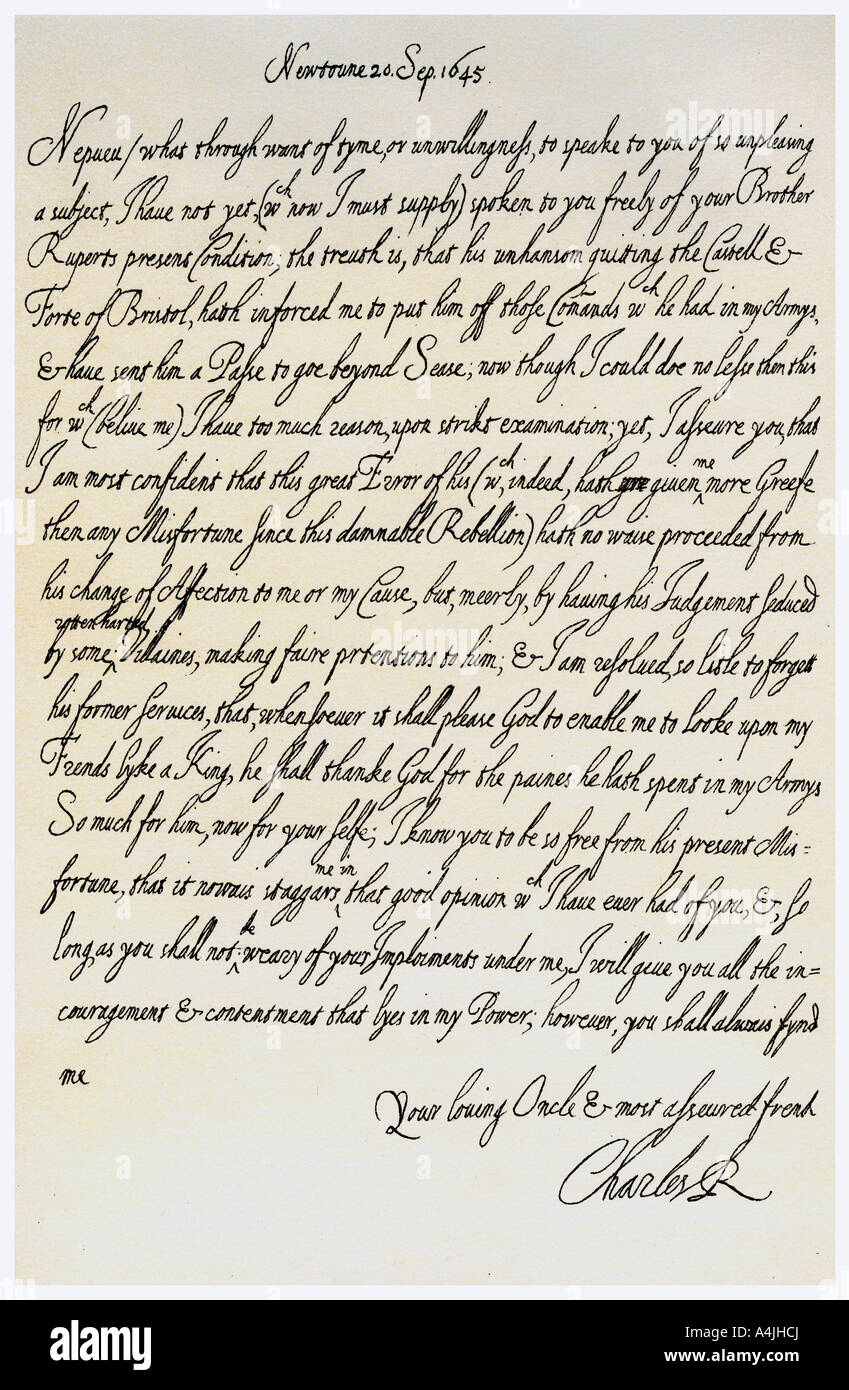 Newtoune 20. Sep. 1645.
Nepueu / what through want of tyme, or unwillingness, to speake to you of so unpleasing
a subject, I haue not yet, (wch now I must supply) spoken to you freely of your Brother
Ruperts present Condition; the treuth is, that his unhansom quitting the Castell &
Forte of Bristol, hath inforced me to put him off those Comands wch he had in my Armys,
& haue sent him a Passe to goe beyond Sease; now though I could doe no lesse then this
for wch (beliue me) I haue too much reason, upon strikt examination; yet, I asseure you, that
I am most confident that this great Error of his (wch, indeed, hath giuen me more Greefe
then any Misfortune since this damnable Rebellion) hath no waise proceeded from
his change of Affection to me or my Cause, but, meerly, by hauing his Judgement seduced
by some rotten harted Villaines, making faire prtentions to him; & I am resolued, so litle to forgett
his former seruices, that, whensoeuer it shall please God to enable me to looke upon my
Frends lyke a King, he shall thanke God for the paines he hath spent in my Armys
So much for him, now for your selfe; I know you to be so free from his present Mis=
fortune, that it nowais staggars me in that good opinion wch I haue euer had of you, &, so
long as you shall not be weary of your Imploiments under me, I will giue you all the in=
couragement & contentment that lyes in my Power; howeuer, you shall alwais fynd
me
Your louing Oncle & most asseured frend
Charles R
alamy
a
alamy
Image ID: A4JHCJ
www.alamy.com